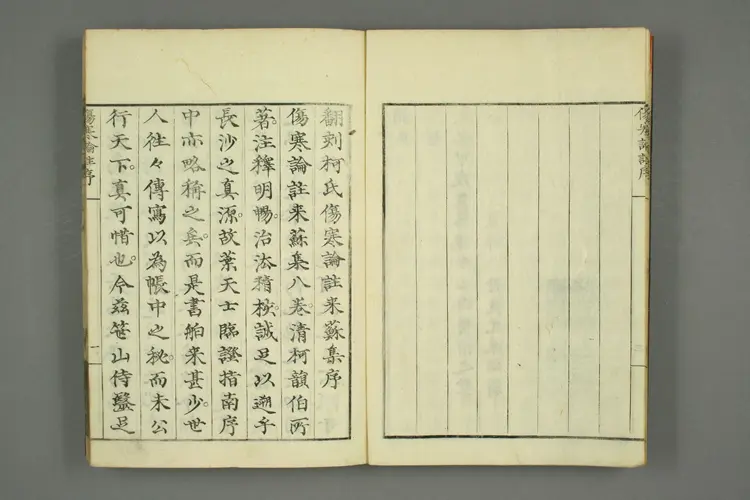 傷寒論註序
翻刻柯氏傷寒論註来蘇集序
傷寒論註来蘇集八卷清柯韻伯所
著。注釋明暢。治法精核。誠足以遡乎
長沙之真源。故葉天士臨證指南序
中亦略稱之矣。而是書舶来甚少。世
人往々傳寫以為帳中之秘。而未公
行天下。真可惜也。今茲笹山侍醫足
傷寒論註序
一